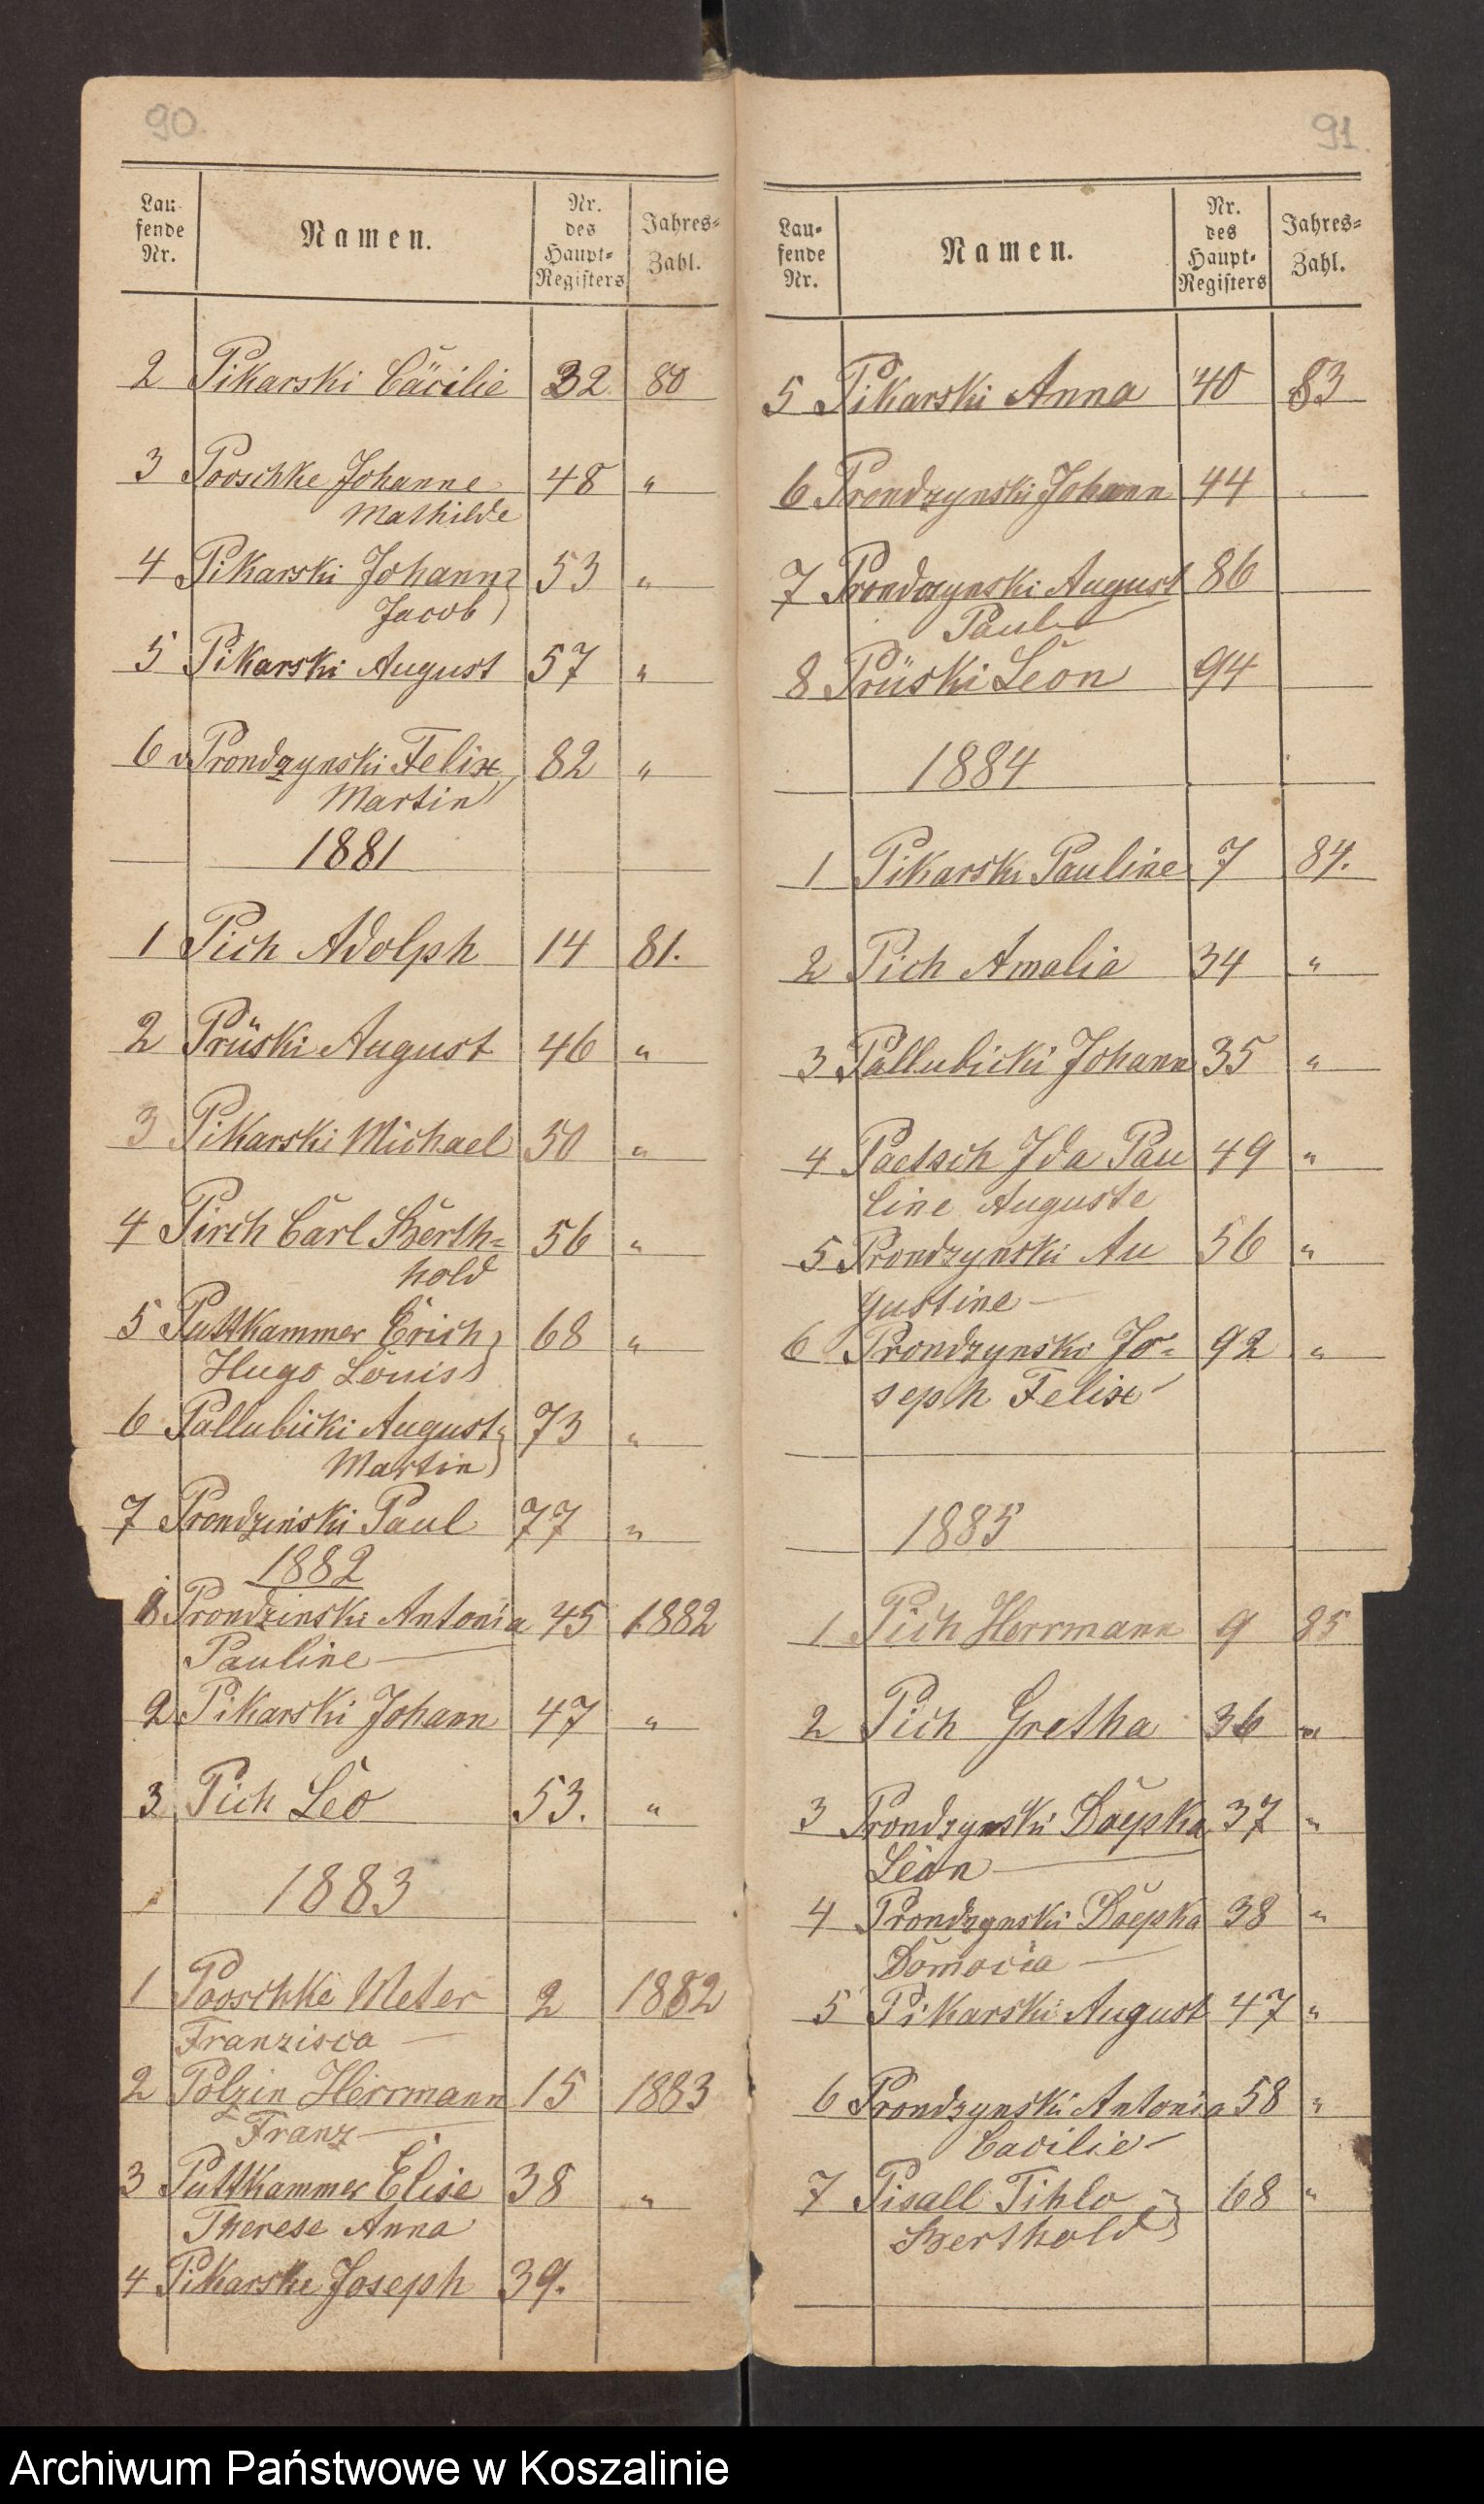 90.
Lau-
fende
Nr.
Namen.
Nr.
des
Haupt-
Registers
Jahres-
Zahl.
2 Pikarski Cäcilie 32 80
3 Pooschke Johanne 48 "
Mathilde
4 Pikarski Johann 53 "
Jacob
5 Pikarski August 57 "
6 v Prondzynski Felix 82 "
Martin
1881
1 Pich Adolph 14 81.
2 Prüski August 46 "
3 Pikarski Michael 50 "
4 Pirch Carl Berth= 56 "
hold
5 Puttkammer Erich 68 "
Hugo Louis
6 Pallubicki August 73 "
Martin
7 Prondzinski Paul 77 "
1882
Prondzinski Antonia 45 1882
Pauline —
2 Pikarski Johann 47 "
3 Pich Leo 53. "
1883
1 Pooschke Meter 2 1882
Franzisca —
2 Polzin Herrmann 15 1883
Franz —
3 Puttkammer Elise 38 "
Therese Anna
4 Pikarski Joseph 39.
91.
Lau-
fende
Nr.
Namen.
Nr.
des
Haupt-
Registers
Jahres-
Zahl.
5 Pikarski Anna 40 83
6 Prondzynski Johann 44
7 Prondzynski August 86
Paul —
8 Prüski Leon 94
1884
1 Pikarski Pauline 7 84.
2 Pich Amalia 34 "
3 Pallubicki Johann 35 "
4 Paetsch Ida Pau 49 "
line Auguste
5 Prondzynski Au 56 "
gustine —
6 Prondzynski Jo= 92 "
seph Felix —
1885
1 Pich Herrmann 9 85
2 Pich Gretha 36 "
3 Prondzynski 37 "
Leon —
4 Prondzynski 38 "
5 Pikarski August 47 "
6 Prondzynski Antonia 58 "
Cacilie —
7 Pisall Tihlo 68 "
Berthold
Archiwum Państwowe w Koszalinie